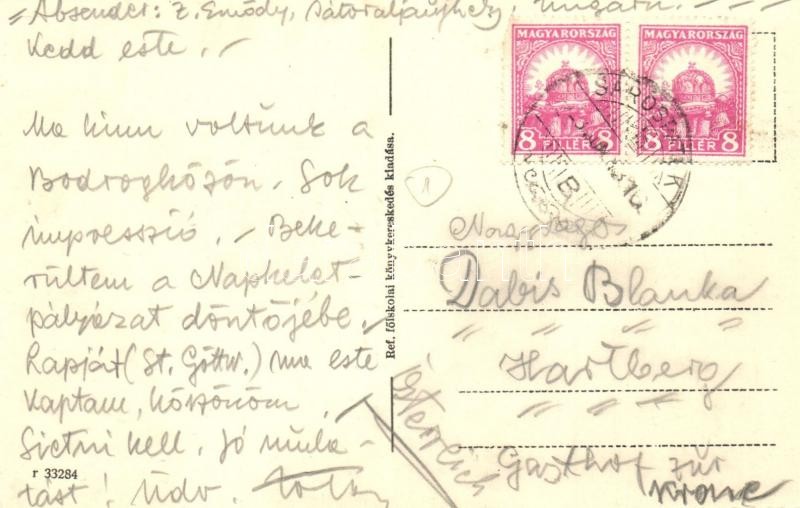 Absender: Z. Emődy, Sátoraljaújhely, Ungarn.
Kedd este.
Ma kinn voltunk a
Bodrogközön. Sok
impresszió. Beke-
rültem a Napkelet-
pályázat döntőjébe.
Lapját (St. Gottw.) ma este
kaptam, köszönöm.
Sietni kell. Jó mula-
tást! Üdv.
r 33284
Ref. főiskolai könyvkereskedés kiadása.
MAGYARORSZÁG
8 FILLÉR 8
MAGYARORSZÁG
8 FILLÉR 8
1
Nagyságos
Dabis Blanka
Hartberg
Gasthof zur
Krone
Österreich